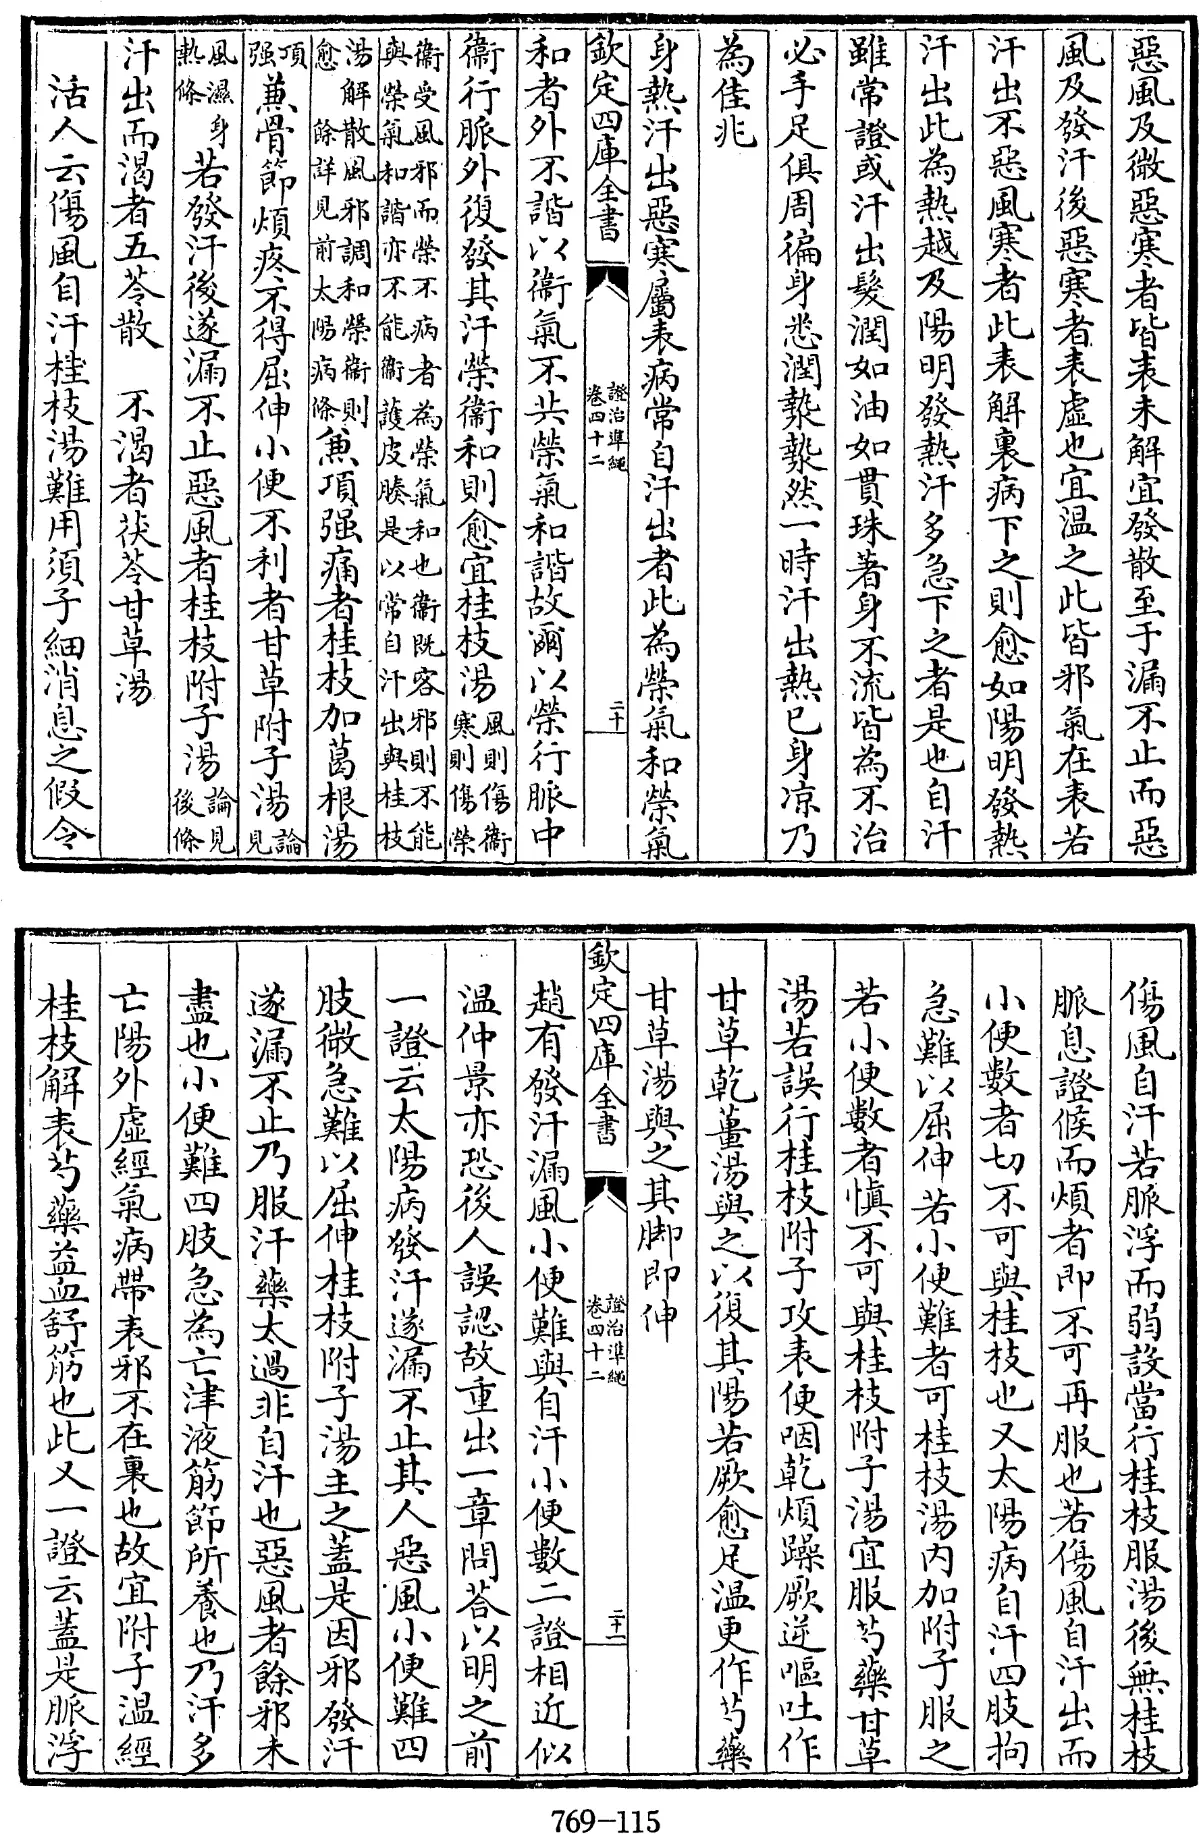 惡風及微惡寒者皆表未解宜發散至于漏不止而惡
風及發汗後惡寒者表虛也宜温之此皆邪氣在表若
汗出不惡風寒者此表解裏病下之則愈如陽明發熱
汗出此為熱越及陽明發熱汗多急下之者是也自汗
雖常證或汗出髮潤如油如貫珠著身不流皆為不治
必手足俱周徧身悉潤漐漐然一時汗出熱已身凉乃
為佳兆
身熱汗出惡寒屬表病常自汗出者此為榮氣和榮氣
欽定四庫全書
證治準繩
卷四十二
二十
和者外不諧以衞氣不共榮氣和諧故爾以榮行脈中
衞行脈外復發其汗榮衞和則愈宜桂枝湯風則傷衞
寒則傷榮
衞受風邪而榮不病者為榮氣和也衞既客邪則不能
與榮氣和諧亦不能衞護皮腠是以常自汗出與桂枝
湯解散風邪調和榮衞則
愈餘詳見前太陽病條兼項强痛者桂枝加葛根湯
項
强兼骨節煩疼不得屈伸小便不利者甘草附子湯論
見
風濕身
熱條若發汗後遂漏不止惡風者桂枝附子湯論見
後條
汗出而渴者五苓散 不渴者茯苓甘草湯
活人云傷風自汗桂枝湯難用須子細消息之假令
傷風自汗若脈浮而弱設當行桂枝服湯後無桂枝
脈息證候而煩者即不可再服也若傷風自汗出而
小便數者切不可與桂枝也又太陽病自汗四肢拘
急難以屈伸若小便難者可桂枝湯内加附子服之
若小便數者愼不可與桂枝附子湯宜服芍藥甘草
湯若誤行桂枝附子攻表便咽乾煩躁厥逆嘔吐作
甘草乾薑湯與之以復其陽若厥愈足温更作芍藥
甘草湯與之其脚即伸
欽定四庫全書
證治準繩
卷四十二
二十一
趙有發汗漏風小便難與自汗小便數二證相近似
温仲景亦恐後人誤認故重出一章問荅以明之前
一證云太陽病發汗遂漏不止其人惡風小便難四
肢微急難以屈伸桂枝附子湯主之蓋是因邪發汗
遂漏不止乃服汗藥太過非自汗也惡風者餘邪未
盡也小便難四肢急為亡津液筋節所養也乃汗多
亡陽外虛經氣病帶表邪不在裏也故宜附子温經
桂枝解表芍藥益血舒筋也此又一證云蓋是脈浮
769-115